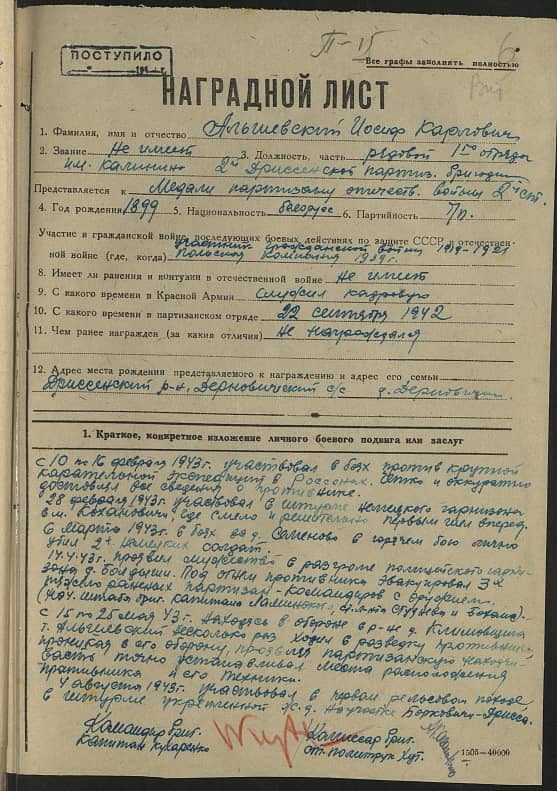 П-15
6
ПОСТУПИЛО
194 г.
Все графы заполнять полностью
НАГРАДНОЙ ЛИСТ
1. Фамилия, имя и отчество Альшевский Иосиф Карлович
2. Звание Не имеет 3. Должность, часть рядовой 1го отряда
им. Калинина 2й Дриссенской партиз. бригады
Представляется к Медали партизану отечеств. войны 2й ст.
4. Год рождения 1899 5. Национальность белорус 6. Партийность
Участие в гражданской войне, последующих боевых действиях по защите СССР и отечествен-
участник гражданской войны 1919-1921
ной войне (где, когда) польская компания 1939г.
8. Имеет ли ранения и контузии в отечественной войне не имеет
9. С какого времени в Красной Армии служил кадровую
10. С какого времени в партизанском отряде 22 сентября 1942
11. Чем ранее награжден (за какия отличия) не награждался
12. Адрес места рождения представляемого к награждению и адрес его семьи
Дриссенский р-н, Дерновический с/с д. Дерновичи
1. Краткое, конкретное изложение личного боевого подвига или заслуг
С 10 по 16 февраля 1943г. участвовал в боях против крупной
карательной экспедиции в Россонах. Четко и аккуратно
доставлял все сведения о противнике.
28 февраля 1943г. участвовал в штурме немецкого гарнизона
в м. Кохановичи, где смело и решительно первым шел вперед.
6 марта 1943г. в боях за д. в горячем бою лично
убил 2х немецких солдат.
14.4.43г. проявил мужество в разгроме полицейского гарни-
зона д. Болдыши. Под огнем противника эвакуировал 3х
тяжело раненых партизан-командиров с оружием.
(нач. штаба бриг. капитана и
С 15 по 25 мая 43г. находясь в обороне в р-не д. Климовщина
т. Альшевский несколько раз ходил в разведку противника,
проникая в его оборону, проявляя партизанскую находчи-
вость точно устанавливал места расположения
противника и его техники.
4 августа 1943г. участвовал в первом рельсовом походе
в штурме укрепленной ж.д. на участке Борковичи-Дрисса.
Командир бриг.
капитан Кухаренко
Комиссар бриг.
ст. политрук
1505—40000